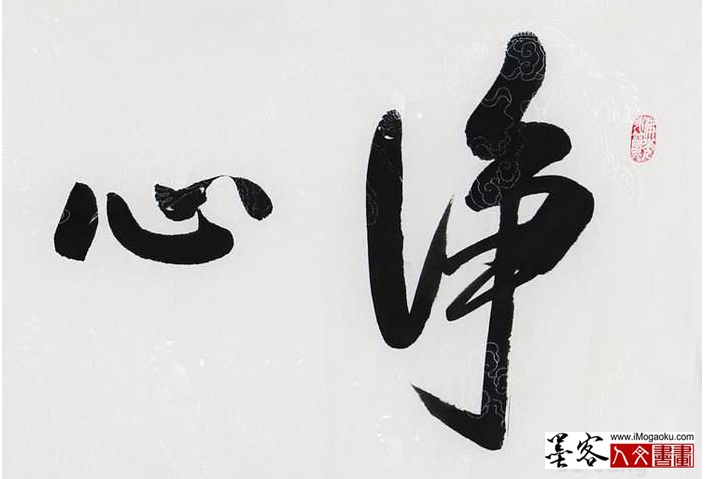 净心
墨客
www.iMogaoku.com
人文書畫